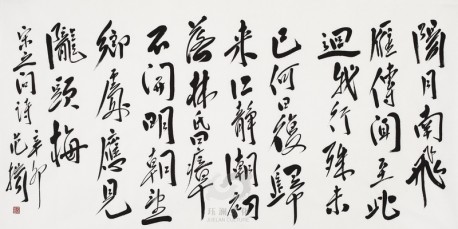 陽月南飛
雁傳聞至此
迴我行殊未
已何日復歸
来江静潮初
落林昏瘴
不開明朝望
鄉處應見
隴頭梅
宋之问詩 辛卯
范